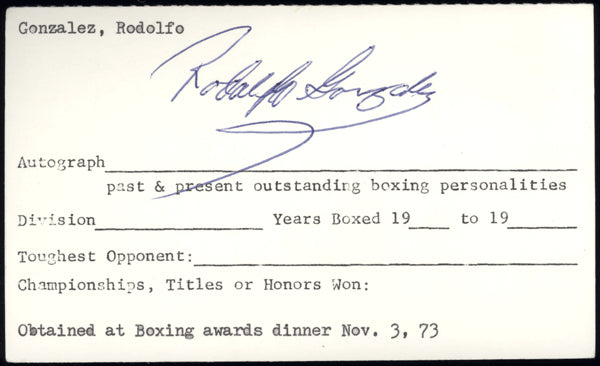 Gonzalez, Rodolfo
Rodolfo Gonzalez
Autograph
past & present outstanding boxing personalities
Division Years Boxed 19 to 19
Toughest Opponent:
Championships, Titles or Honors Won:
Obtained at Boxing awards dinner Nov. 3, 73